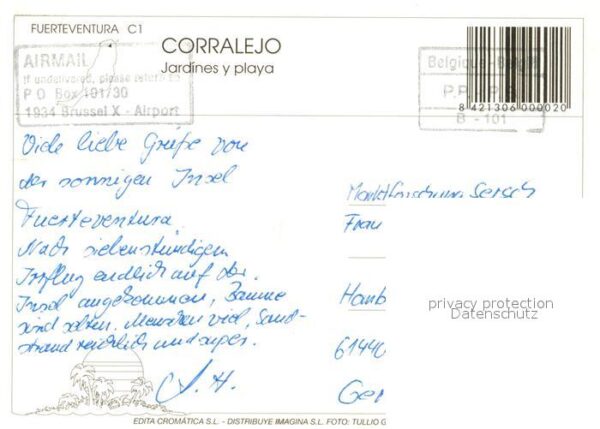 FUERTEVENTURA C1
CORRALEJO
Jardines y playa
AIRMAIL
If undelivered, please return to
P O Box 101/30
1934 Brussel X - Airport
Belgique - België
P.P.
B - 101
8 421306 000020
Viele liebe Grüße von
der sonnigen Insel
Fuerteventura.
Nach siebenstündigem
Irrflug endlich auf der
Insel angekommen, Bäume
sind selten, Menschen viel, Sand-
strand reichlich und super.
H.
Marktforschung
Frau
Hamb
61440
Ger
privacy protection
Datenschutz
EDITA CROMÁTICA S.L. - DISTRIBUYE IMAGINA S.L. FOTO: TULLIO G